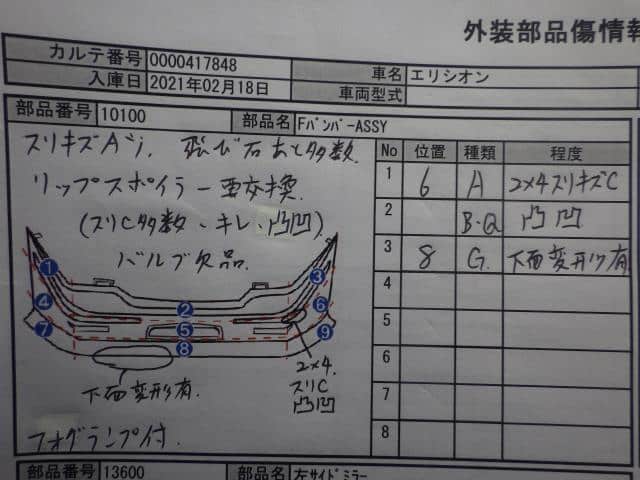 外装部品傷情報
カルテ番号 0000417848 車名 エリシオン
入庫日 2021年02月18日 車両型式
部品番号 10100 部品名 FバンパーASSY
スリキズA 飛び石あと多数
No 位置 種類 程度
リップスポイラー要交換
1 6 A 2×4スリキズC
(スリC多数、キレ、凸凹)
2 B・Q 凸凹
バルブ欠品
3 8 G 下面変形有
4
5
6
7
8
1
2
3
4
5
6
7
8
9
2×4
スリC
凸凹
下面変形有
フォグランプ付
部品番号 13600 部品名 左サイドミラー